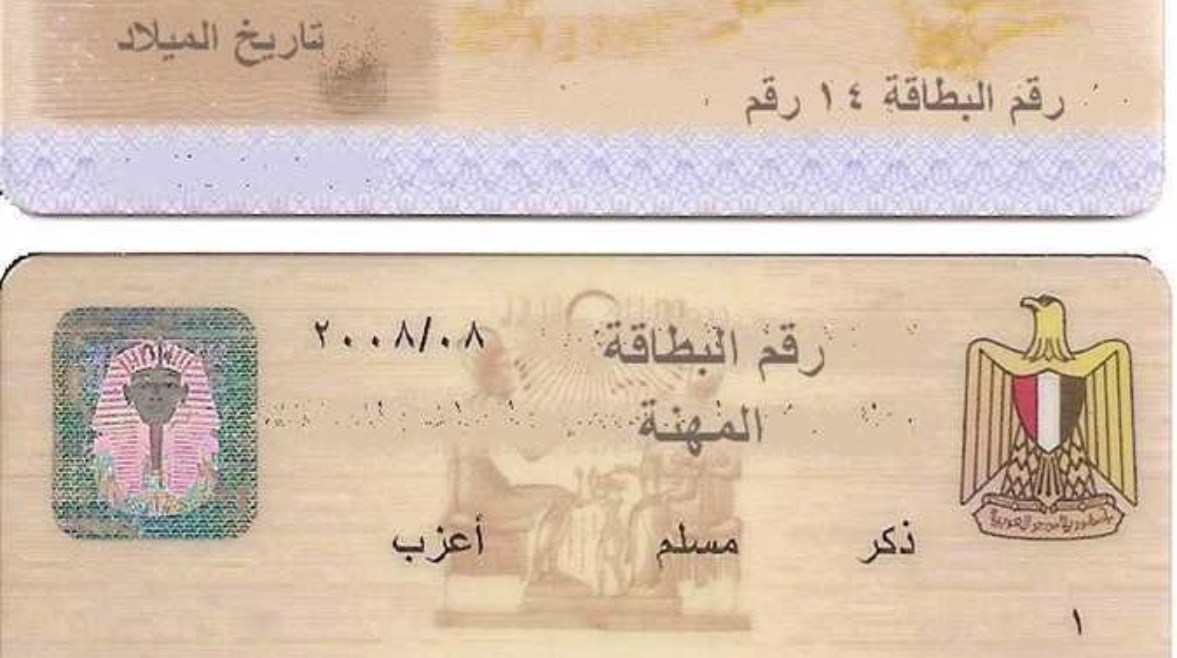 تاريخ الميلاد
رقم البطاقة ١٤ رقم
رقم البطاقة ٢٠٠٨/٠٨
المهنة
ذكر مسلم أعزب
١